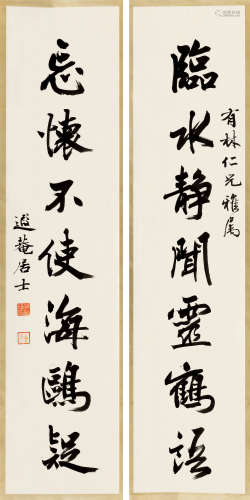 臨水静聞靈鶴語
有林仁兄雅屬
忘懷不使海鷗疑
遐菴居士